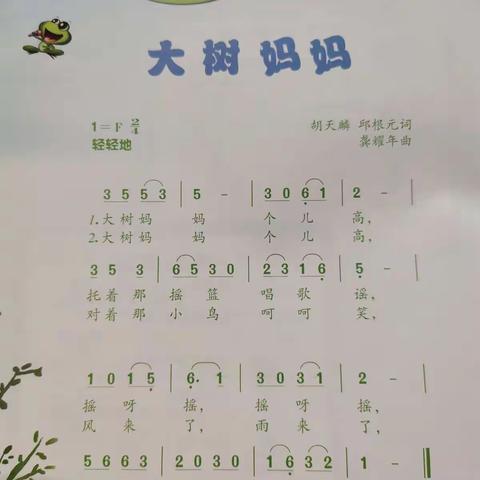 大树妈妈
1=F 2/4
胡天麟 邱根元词
轻轻地
龚耀年曲
3 5 5 3 | 5 - | 3 0 6 1 | 2 - |
1.大树妈 妈 个 儿 高,
2.大树妈 妈 个 儿 高,
3 5 3 | 6 5 3 0 | 2 3 1 6 | 5 - |
托着那 摇 篮 唱 歌 谣,
对着那 小 鸟 呵 呵 笑,
1 0 1 5 | 6· 1 | 3 0 3 1 | 2 - |
摇 呀 摇, 摇 呀 摇,
风 来 了, 雨 来 了,
5 6 6 3 | 2 0 3 0 | 1 6 3 2 | 1 - ‖